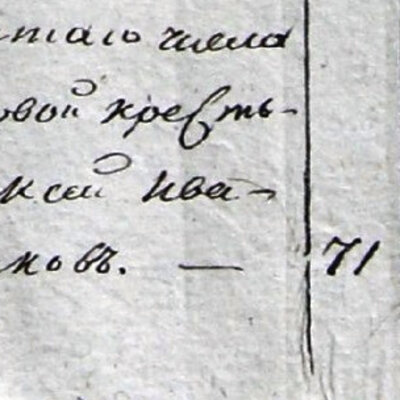 таго числа
овой кресть-
ксей Ива-
новъ. — 71